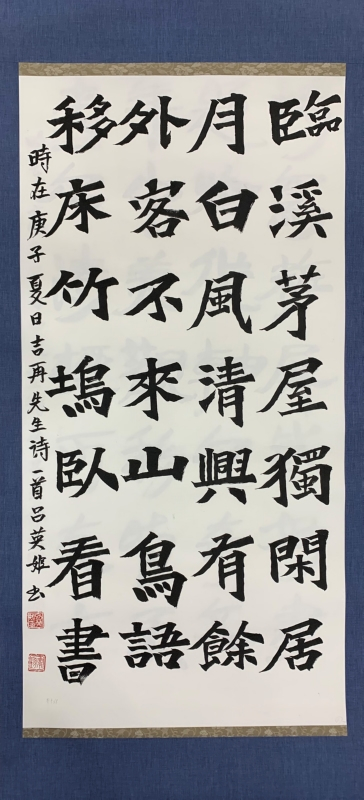 臨溪茅屋獨閑居
月白風清興有餘
外客不來山鳥語
移床竹塢臥看書
時在庚子夏日吉再先生诗一首呂英姬书